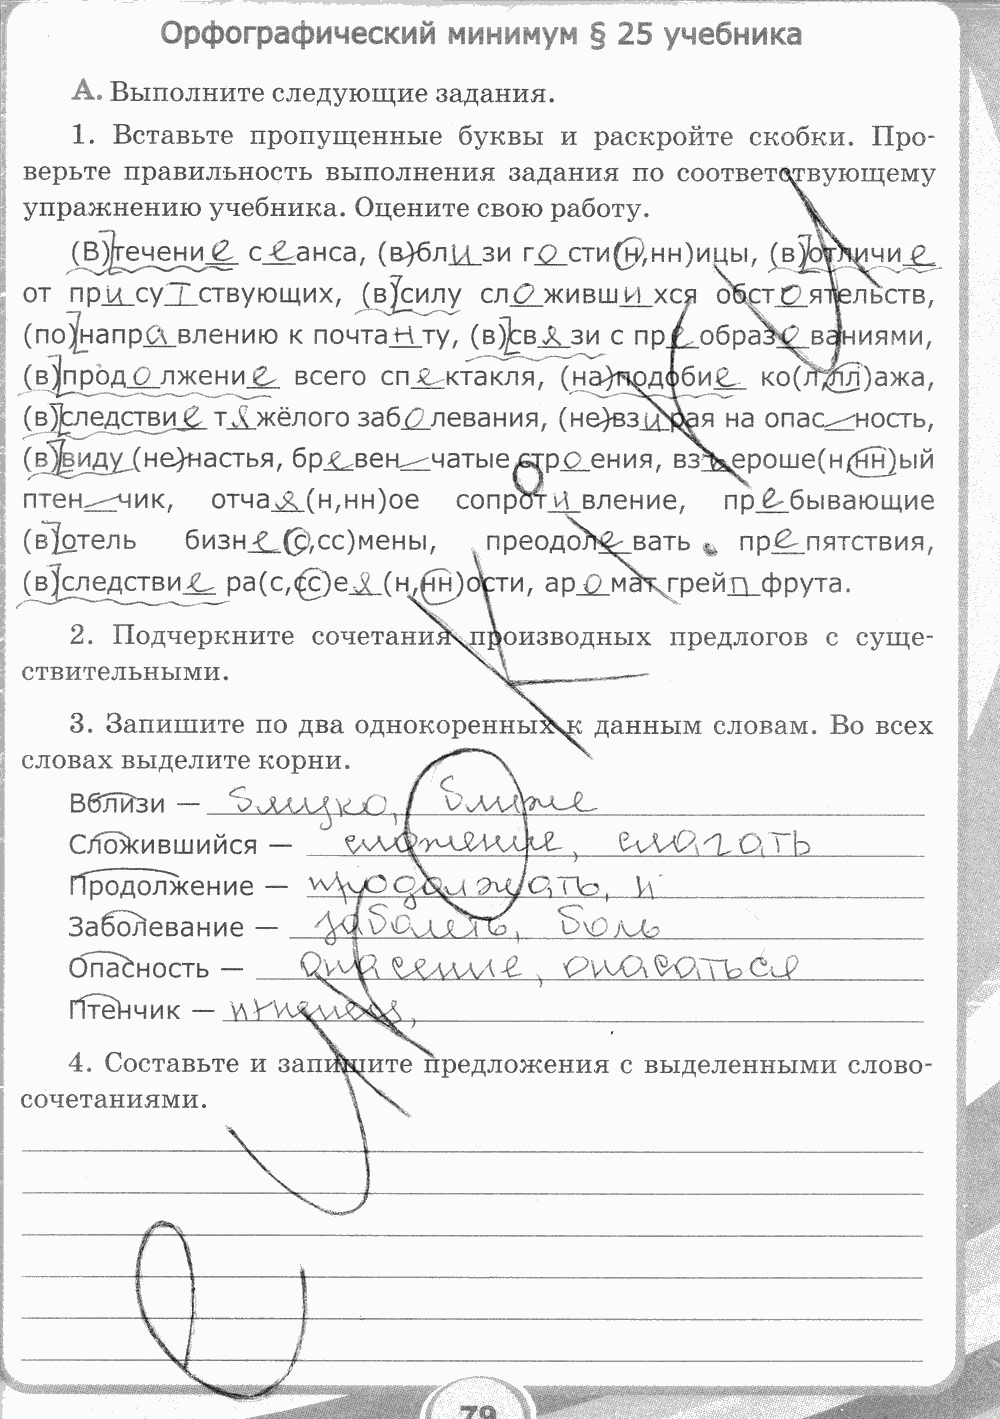 Орфографический минимум § 25 учебника
А. Выполните следующие задания.
1. Вставьте пропущенные буквы и раскройте скобки. Про-
верьте правильность выполнения задания по соответствующему
упражнению учебника. Оцените свою работу.
(В)течение сеанса, (в)близи гости(н,нн)ицы, (в)отличие
от присутствующих, (в)силу сложившихся обстоятельств,
(по)направлению к почтанту, (в)связи с преобразованиями,
(в)продолжение всего спектакля, (на)подобие ко(л,лл)ажа,
(в)следствие тяжёлого заболевания, (не)взирая на опасность,
(в)виду (не)настья, бревенчатые строения, взъероше(н,нн)ый
птенчик, отчая(н,нн)ое сопротивление, пребывающие
(в)отель бизне(с,сс)мены, преодолевать препятствия,
(в)следствие ра(с,сс)ея(н,нн)ости, аромат грейпфрута.
2. Подчеркните сочетания производных предлогов с суще-
ствительными.
3. Запишите по два однокоренных к данным словам. Во всех
словах выделите корни.
Вблизи — близко, ближе
Сложившийся — сложение, слагать
Продолжение — продолжать, п
Заболевание — заболеть, боль
Опасность — опасение, опасаться
Птенчик — птенец,
4. Составьте и запишите предложения с выделенными слово-
сочетаниями.
79